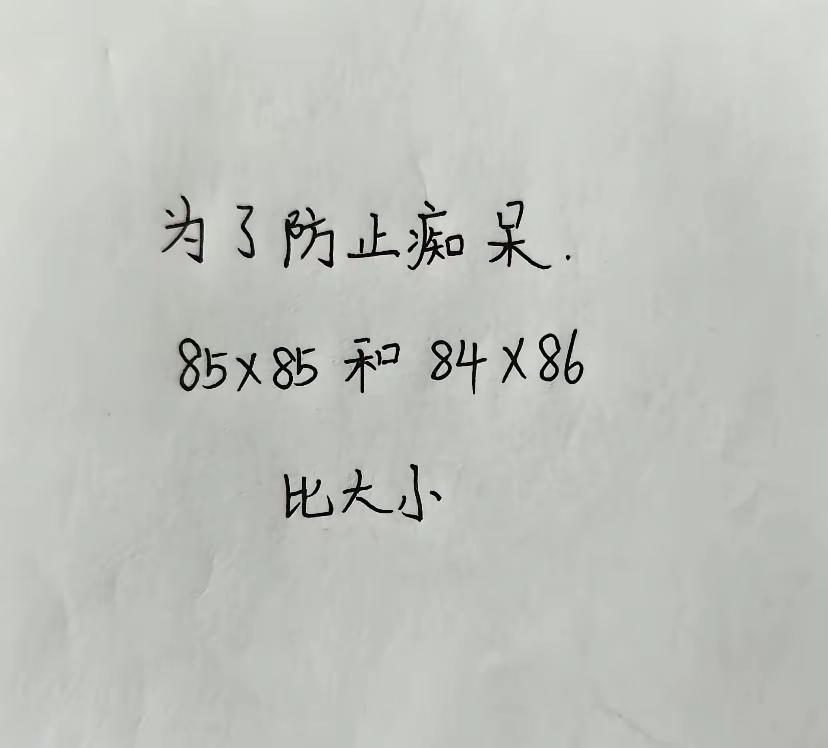 为了防止痴呆.
85×85 和 84×86
比大小